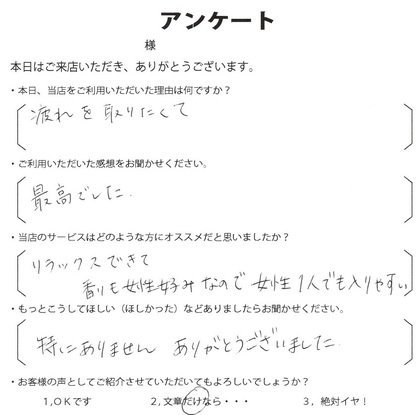 アンケート
様
本日はご来店いただき、ありがとうございます。
・本日、当店をご利用いただいた理由は何ですか？
疲れを取りたくて
・ご利用いただいた感想をお聞かせください。
最高でした.
・当店のサービスはどのような方にオススメだと思いましたか？
リラックスできて
香りも女性好みなので 女性1人でも入りやすい
・もっとこうしてほしい（ほしかった）などありましたらお聞かせください。
特にありません ありがとうございました.
・お客様の声としてご紹介させていただいてもよろしいでしょうか？
1,OKです 2,文章だけなら・・・ 3，絶対イヤ！